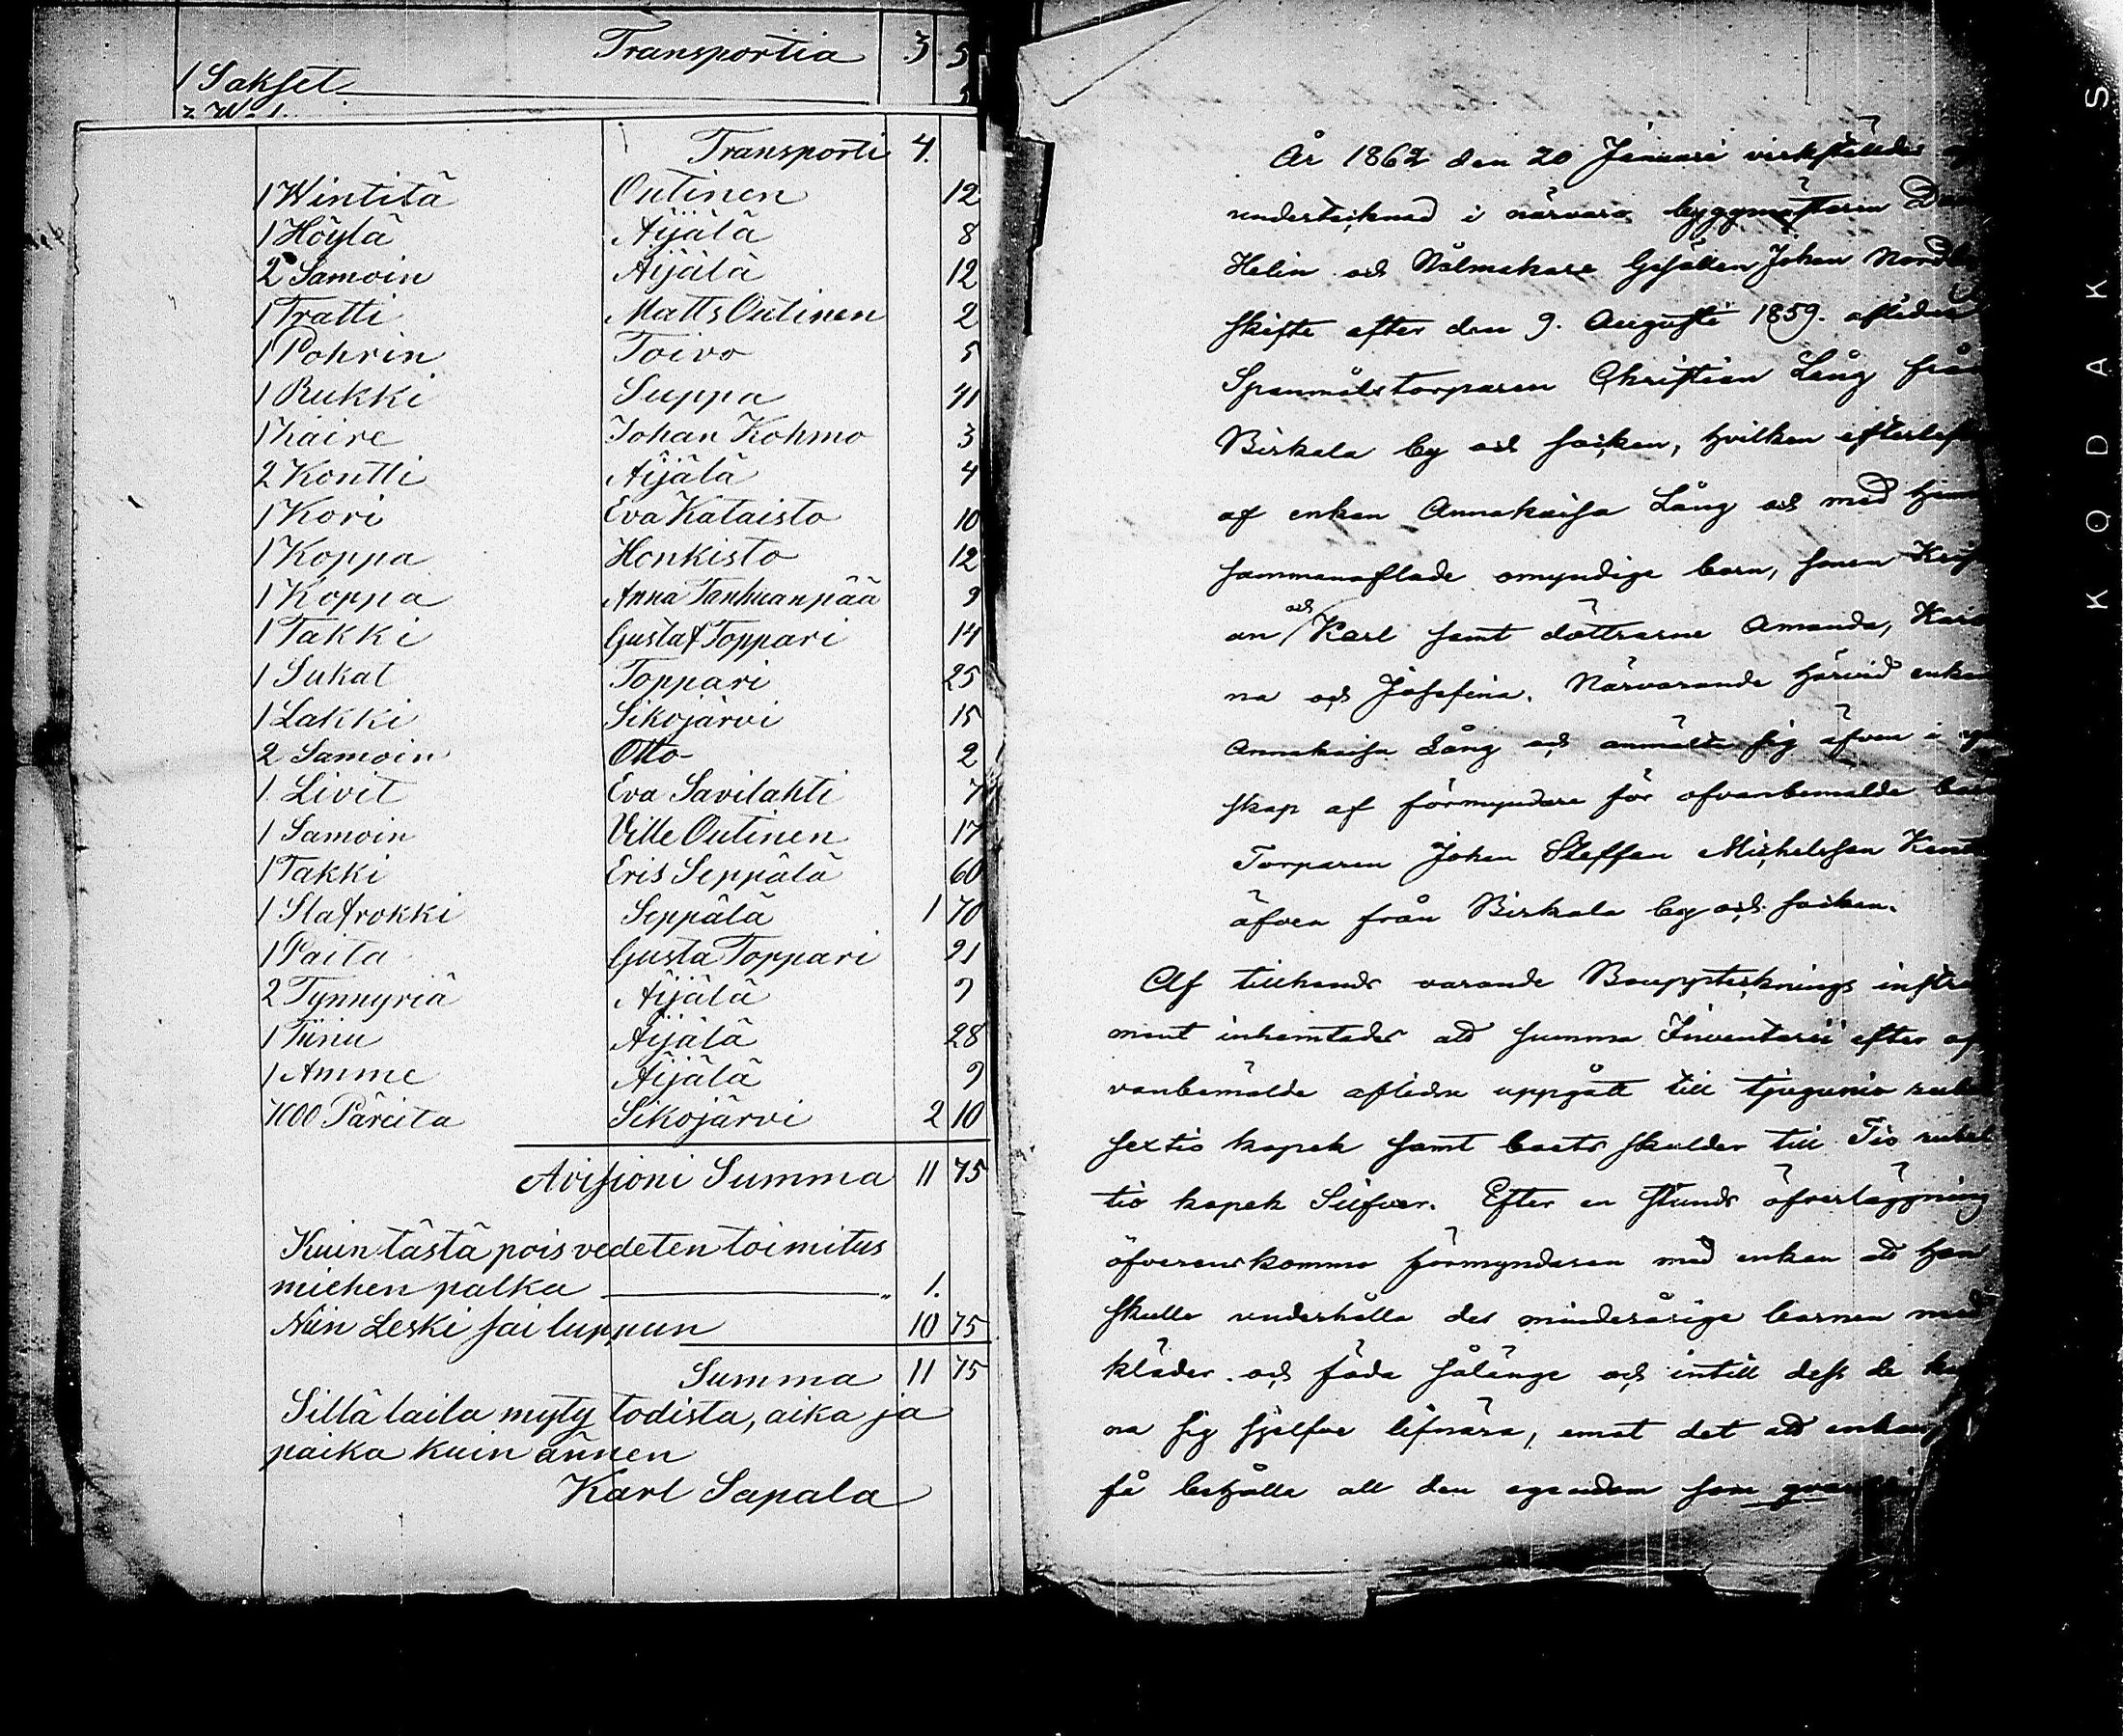 Transportia 3 5
1 Sakset
Transporti 4.
1 Wintitä Outinen 12
1 Höylä Äijälä 8
2 Samoin Äijälä 12
1 Tratti Matts Outinen 2
1 Pohrin Toivo 5
1 Rukki Suppa 41
1 Kaire Johan Kohmo 3
2 Kontti Äijälä 4
1 Kori Eva Kataisto 10
1 Koppa Honkisto 12
1 Koppa Anna Tanhuanpää 9
1 Takki Gustaf Toppari 14
1 Sukat Toppari 25
1 Lakki Sikojärvi 15
2 Samoin Otto 2
1 Livit Eva Savilahti 7
1 Samoin Ville Outinen 17
1 Takki Eris Seppälä 60
1 Slafrokki Seppälä 1 70
1 Paita Gusta Toppari 21
2 Tynnyriä Äijälä 9
1 Tiinu Äijälä 28
1 Amme Äijälä 9
1100 Päreita Sikojärvi 2 10
Avisioni Summa 11 75
Kuin tästä pois vedeten toimitus
miehen palka 1.
Niin Leski sai luppun 10 75
Summa 11 75
Sillä laila myty todista, aika ja
paika kuin ännen
Karl Sapala
År 1862 den 20 Januari verkställdes
undertecknad i närvaro byggmästaren
Helin och Nålmakare Gesällen Johan
skifte efter den 9. Augusti 1859. aflidne
Spanmålstorparen Christian Lång från
Birkala by och socken, hvilken efterlef
af enkan Annakaisa Lång och med
sammanaflade omyndige barn, sonen
an och Karl samt döttrarne Amanda,
na och Josefina. Närvarande härvid enkan
Annakaisa Lång och anmälte sig äfven i
skap af förmyndare för ofvanbemälde
Torparen Johan Steffan Michelsson
äfven från Birkala by och socken.
Af tillhands varande Bouppteknings instru
ment inhemtades att summa Inventarii efter of
vanbemälde aflidne uppgått till tjugunio
sextio kopek samt boets skulder till Tio rubel
tio kopek Silfver. Efter en stunds öfverläggning
öfverenskommo förmyndaren med enkan att hon
skulle underhålla des minderårige barnen med
kläder och föda sålänge och intill dess de
na sig sjelfve lifnära, emot det att enkan
få behålla all den egendom som
KODAK S